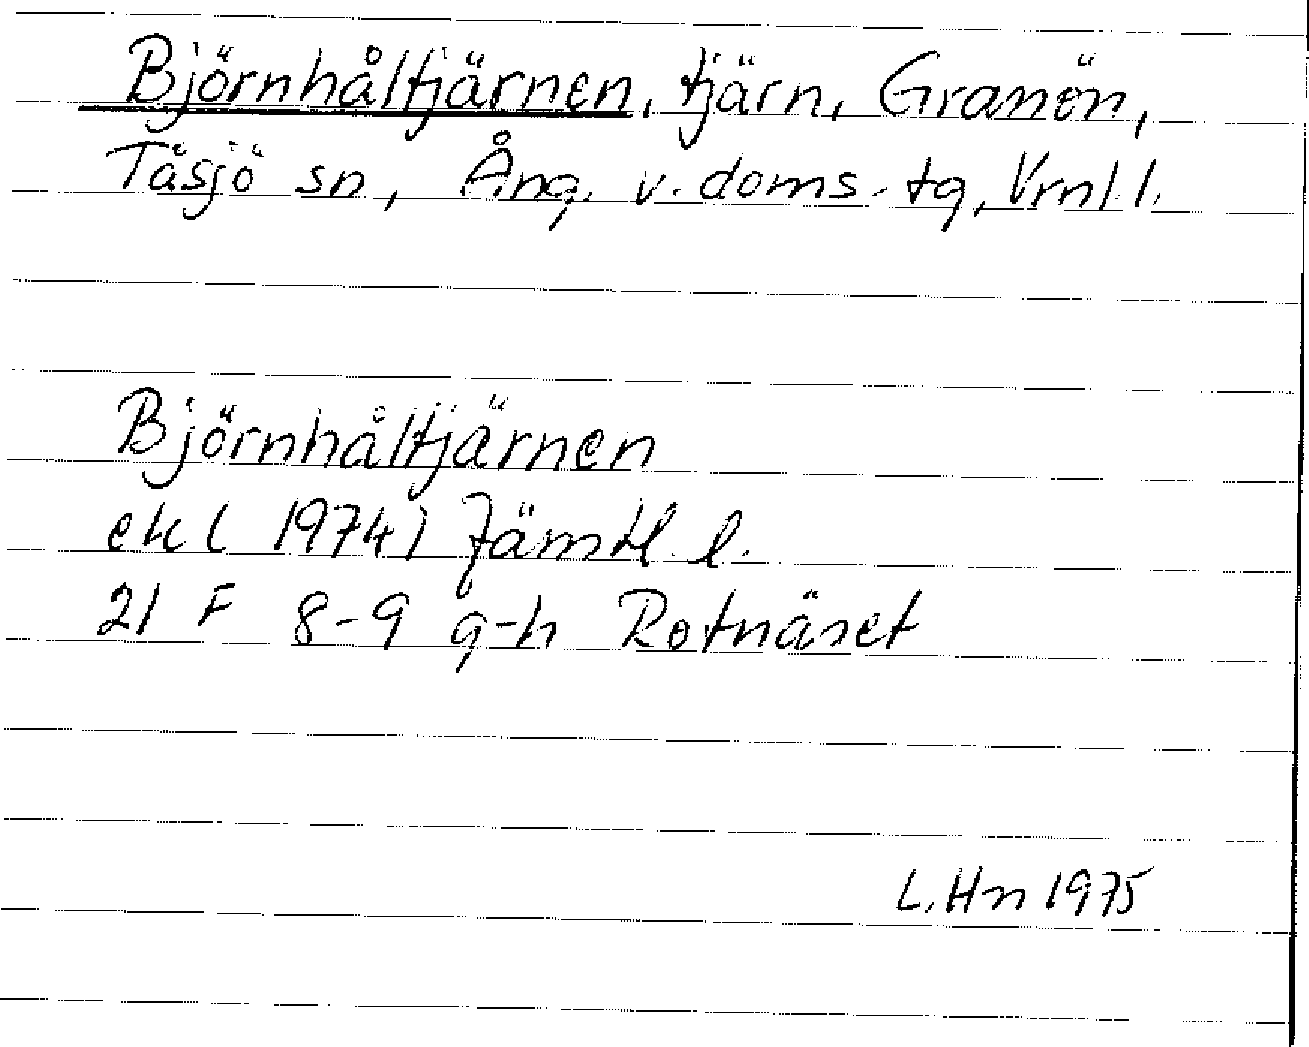 Björnhåltjärnen, tjärn, Granön,
Tåsjö sn, Ång. v. doms. tg, Vrnl l.
Björnhåltjärnen
ek ( 1974 ) Jämtl. l.
21 F 8-9 g-h Rotnäset
L. Hn 1975